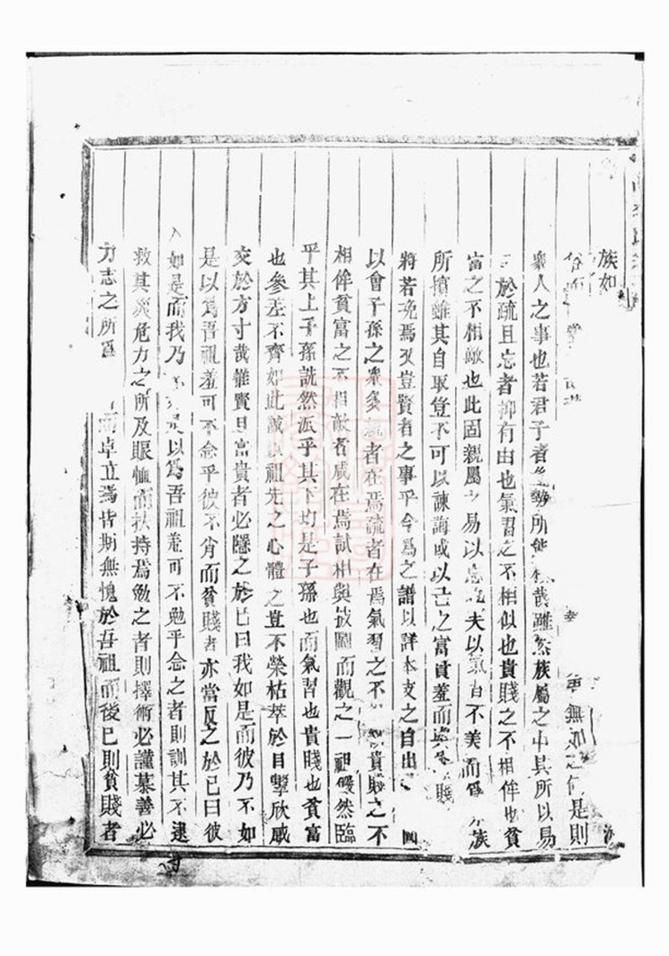 族如
俗
無 是則
衆人之事也若君子者 勢所 哉雖然族屬之中其所以易
於疏且忘者抑有由也氣習之不相似也貴賤之不相侔也貧
富之不相敵也此固親屬之易以 夫以氣習不美而 族
所擯雖其自取豈不可以諫誨或以己之富貴羞而與 賤
將若凂焉又豈賢者之事乎今爲之譜以詳本支之自出
以會子孫之衆多親者在焉疏者在焉氣習之不 貴賤之不
相侔貧富之不相敵者咸在焉試相與披圖而觀之一祖儼然臨
乎其上子孫詵然派乎其下均是子孫也而氣習也貴賤也貧富
也參差不齊如此誠以祖先之心體之豈不榮枯萃於目擊欣戚
交於方寸哉惟賢且富貴者必隱之於己曰我如是而彼乃不如
是以爲吾祖羞可不念乎彼不肖而貧賤者亦當反之於己曰彼
如是而我乃 是以爲吾祖羞可不勉乎念之者則訓其不逮
救其災危力之所及賑恤而扶持焉勉之者則擇術必謹慕善必
力志之所爲 而卓立焉皆期無愧於吾祖而後已則貧賤者